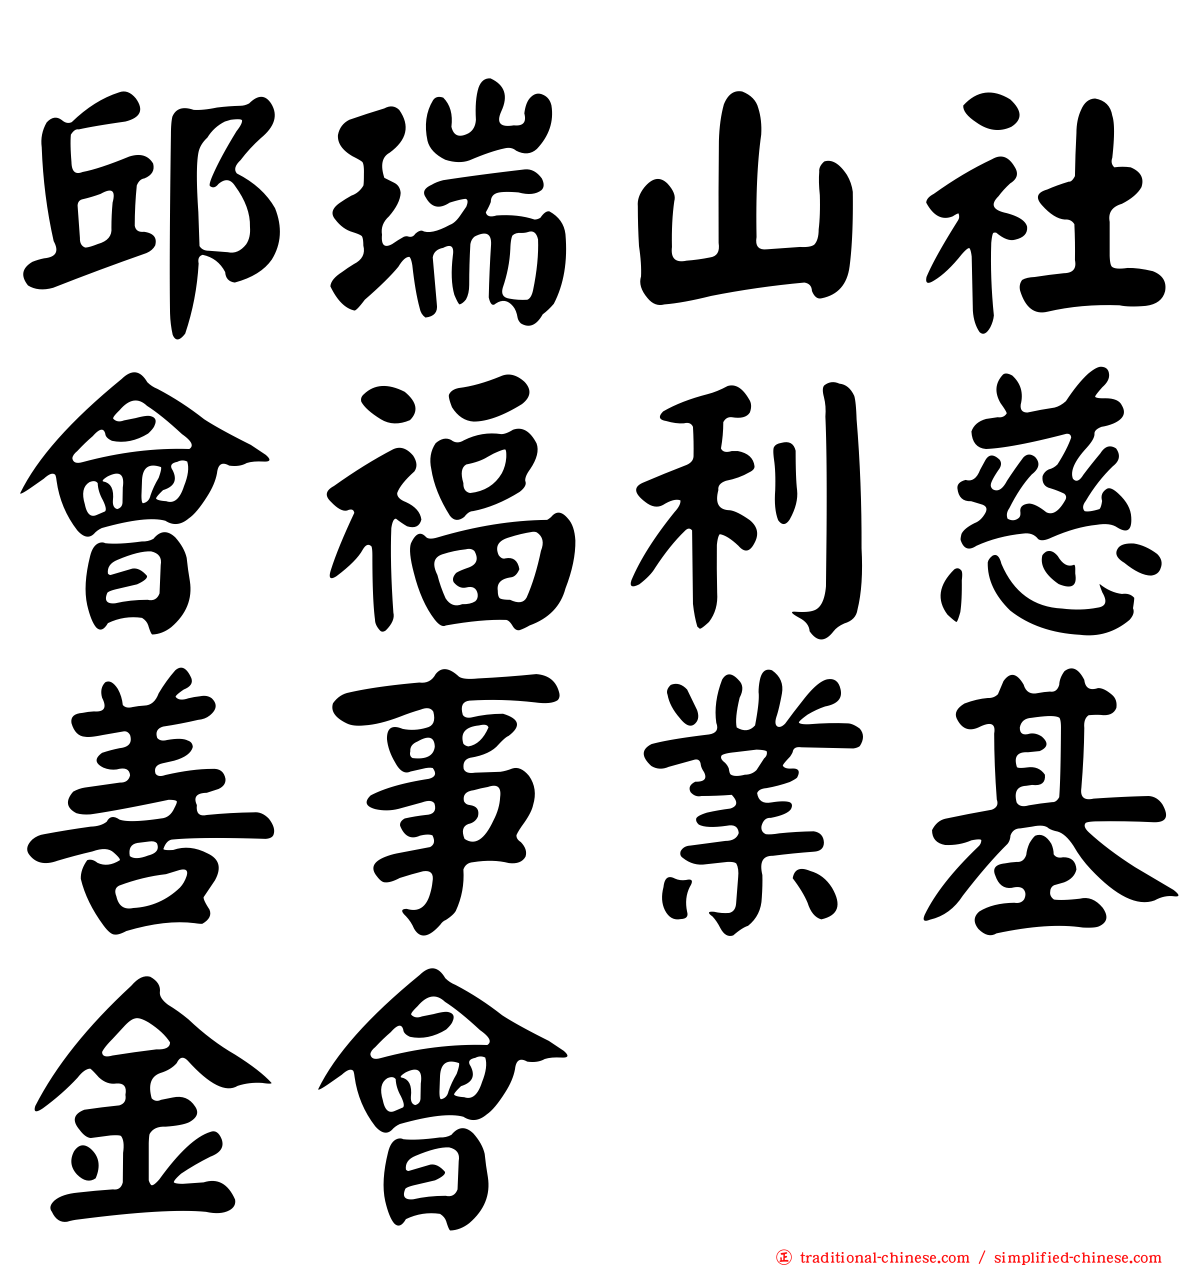 邱瑞山社
會福利慈
善事業基
金會
㊣ traditional-chinese.com / simplified-chinese.com